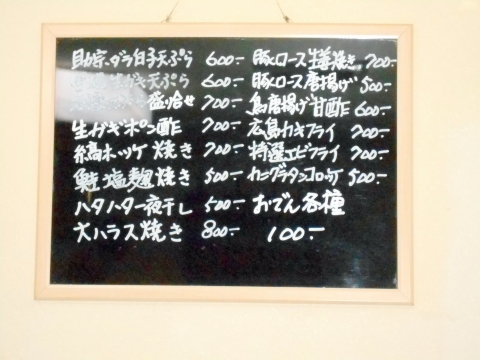 助宗ダラ白子天ぷら 600-
生がき天ぷら 600-
盛合せ 700-
生ガキポン酢 700-
縞ホッケ焼き 700-
鮭塩麹焼き 500-
ハタハタ一夜干し 500-
大ハラス焼き 800-
豚ロース生姜焼き 700-
豚ロース唐揚げ 500-
鳥唐揚げ甘酢 600-
広島カキフライ 700-
特選エビフライ 700-
カニグラタンコロッケ 500-
おでん各種
100-